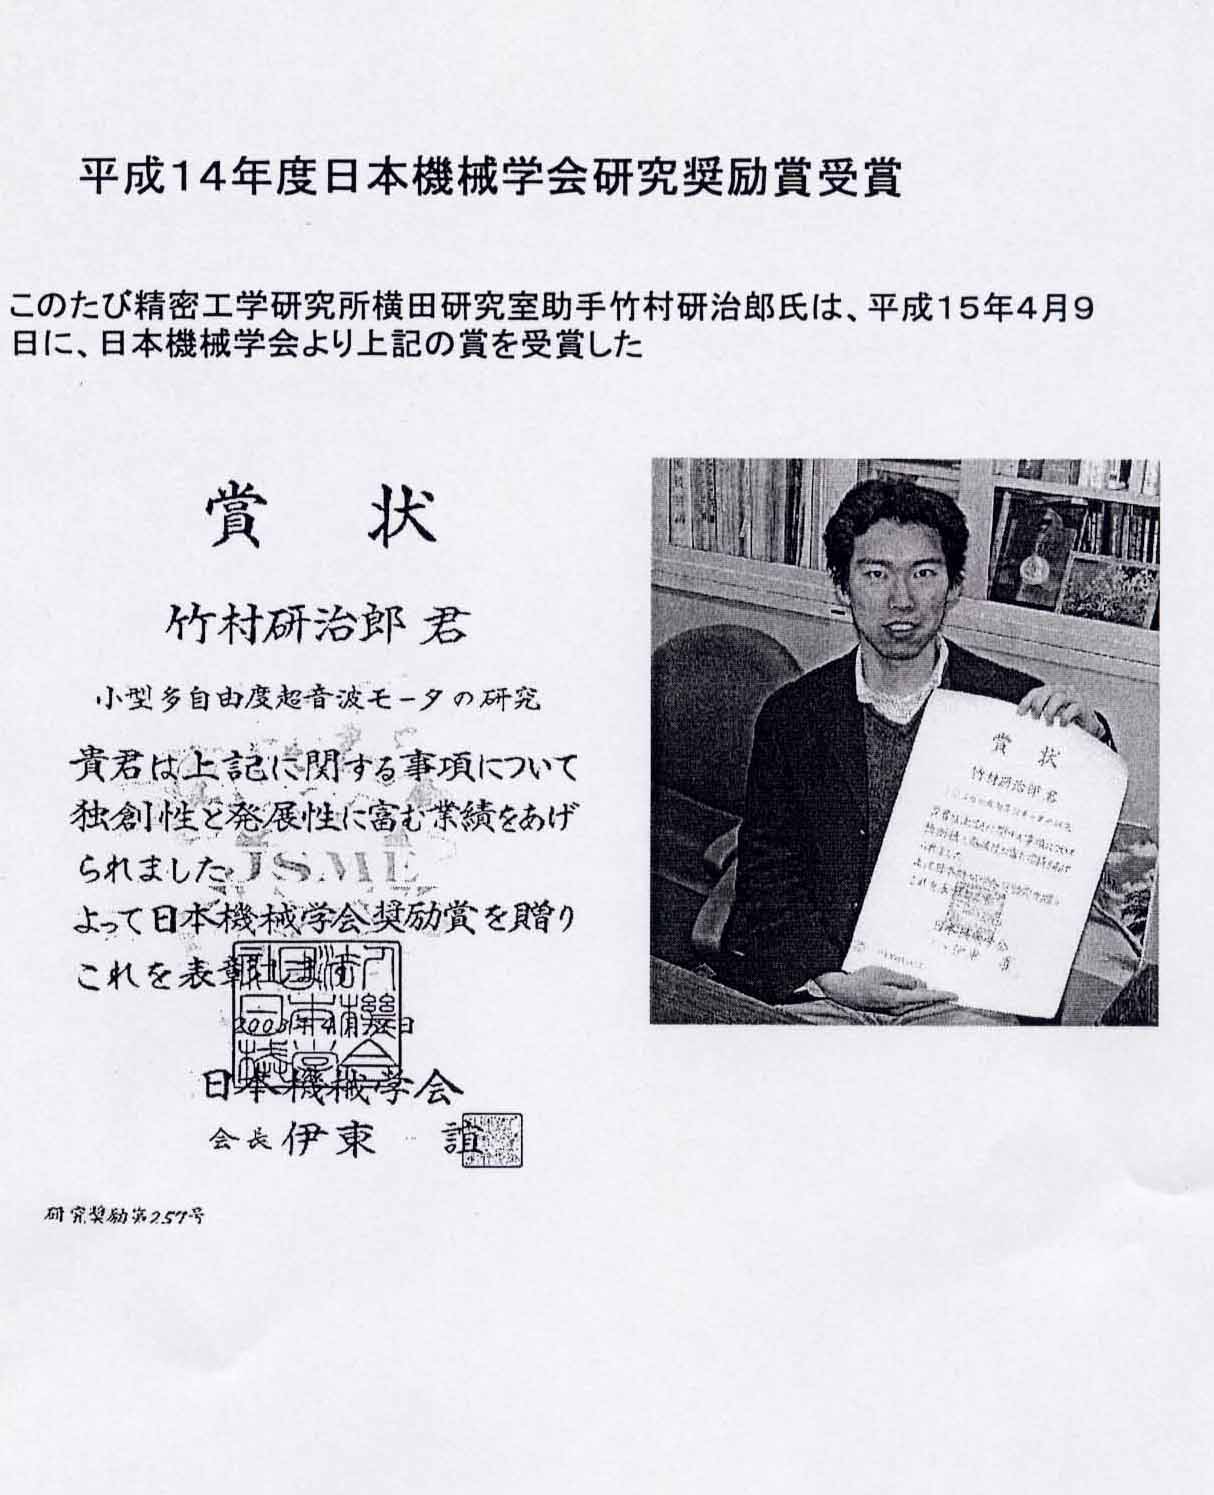 平成14年度日本機械学会研究奨励賞受賞
このたび精密工学研究所横田研究室助手竹村研治郎氏は、平成15年4月9
日に、日本機械学会より上記の賞を受賞した
賞 状
竹村研治郎 君
小型多自由度超音波モータの研究
貴君は上記に関する事項について
独創性と発展性に富む業績をあげ
られました
JSME
よって日本機械学会奨励賞を贈り
これを表彰します
日本機械学会
会長 伊東 誼
研究奨励第257号
賞 状
竹村研治郎 君